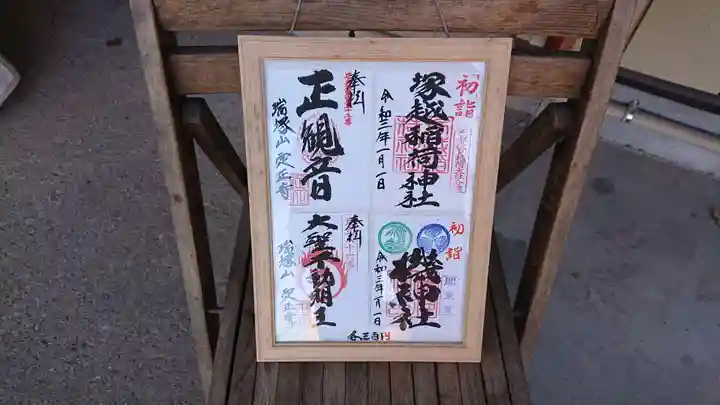 初詣
塚越稲荷神社
令和三年一月一日
奉拝
正観音
瑞塚山 定正寺
初詣
機神社
令和三年一月一日
奉拝
大聖不動明王
瑞塚山 定正寺
各三百円